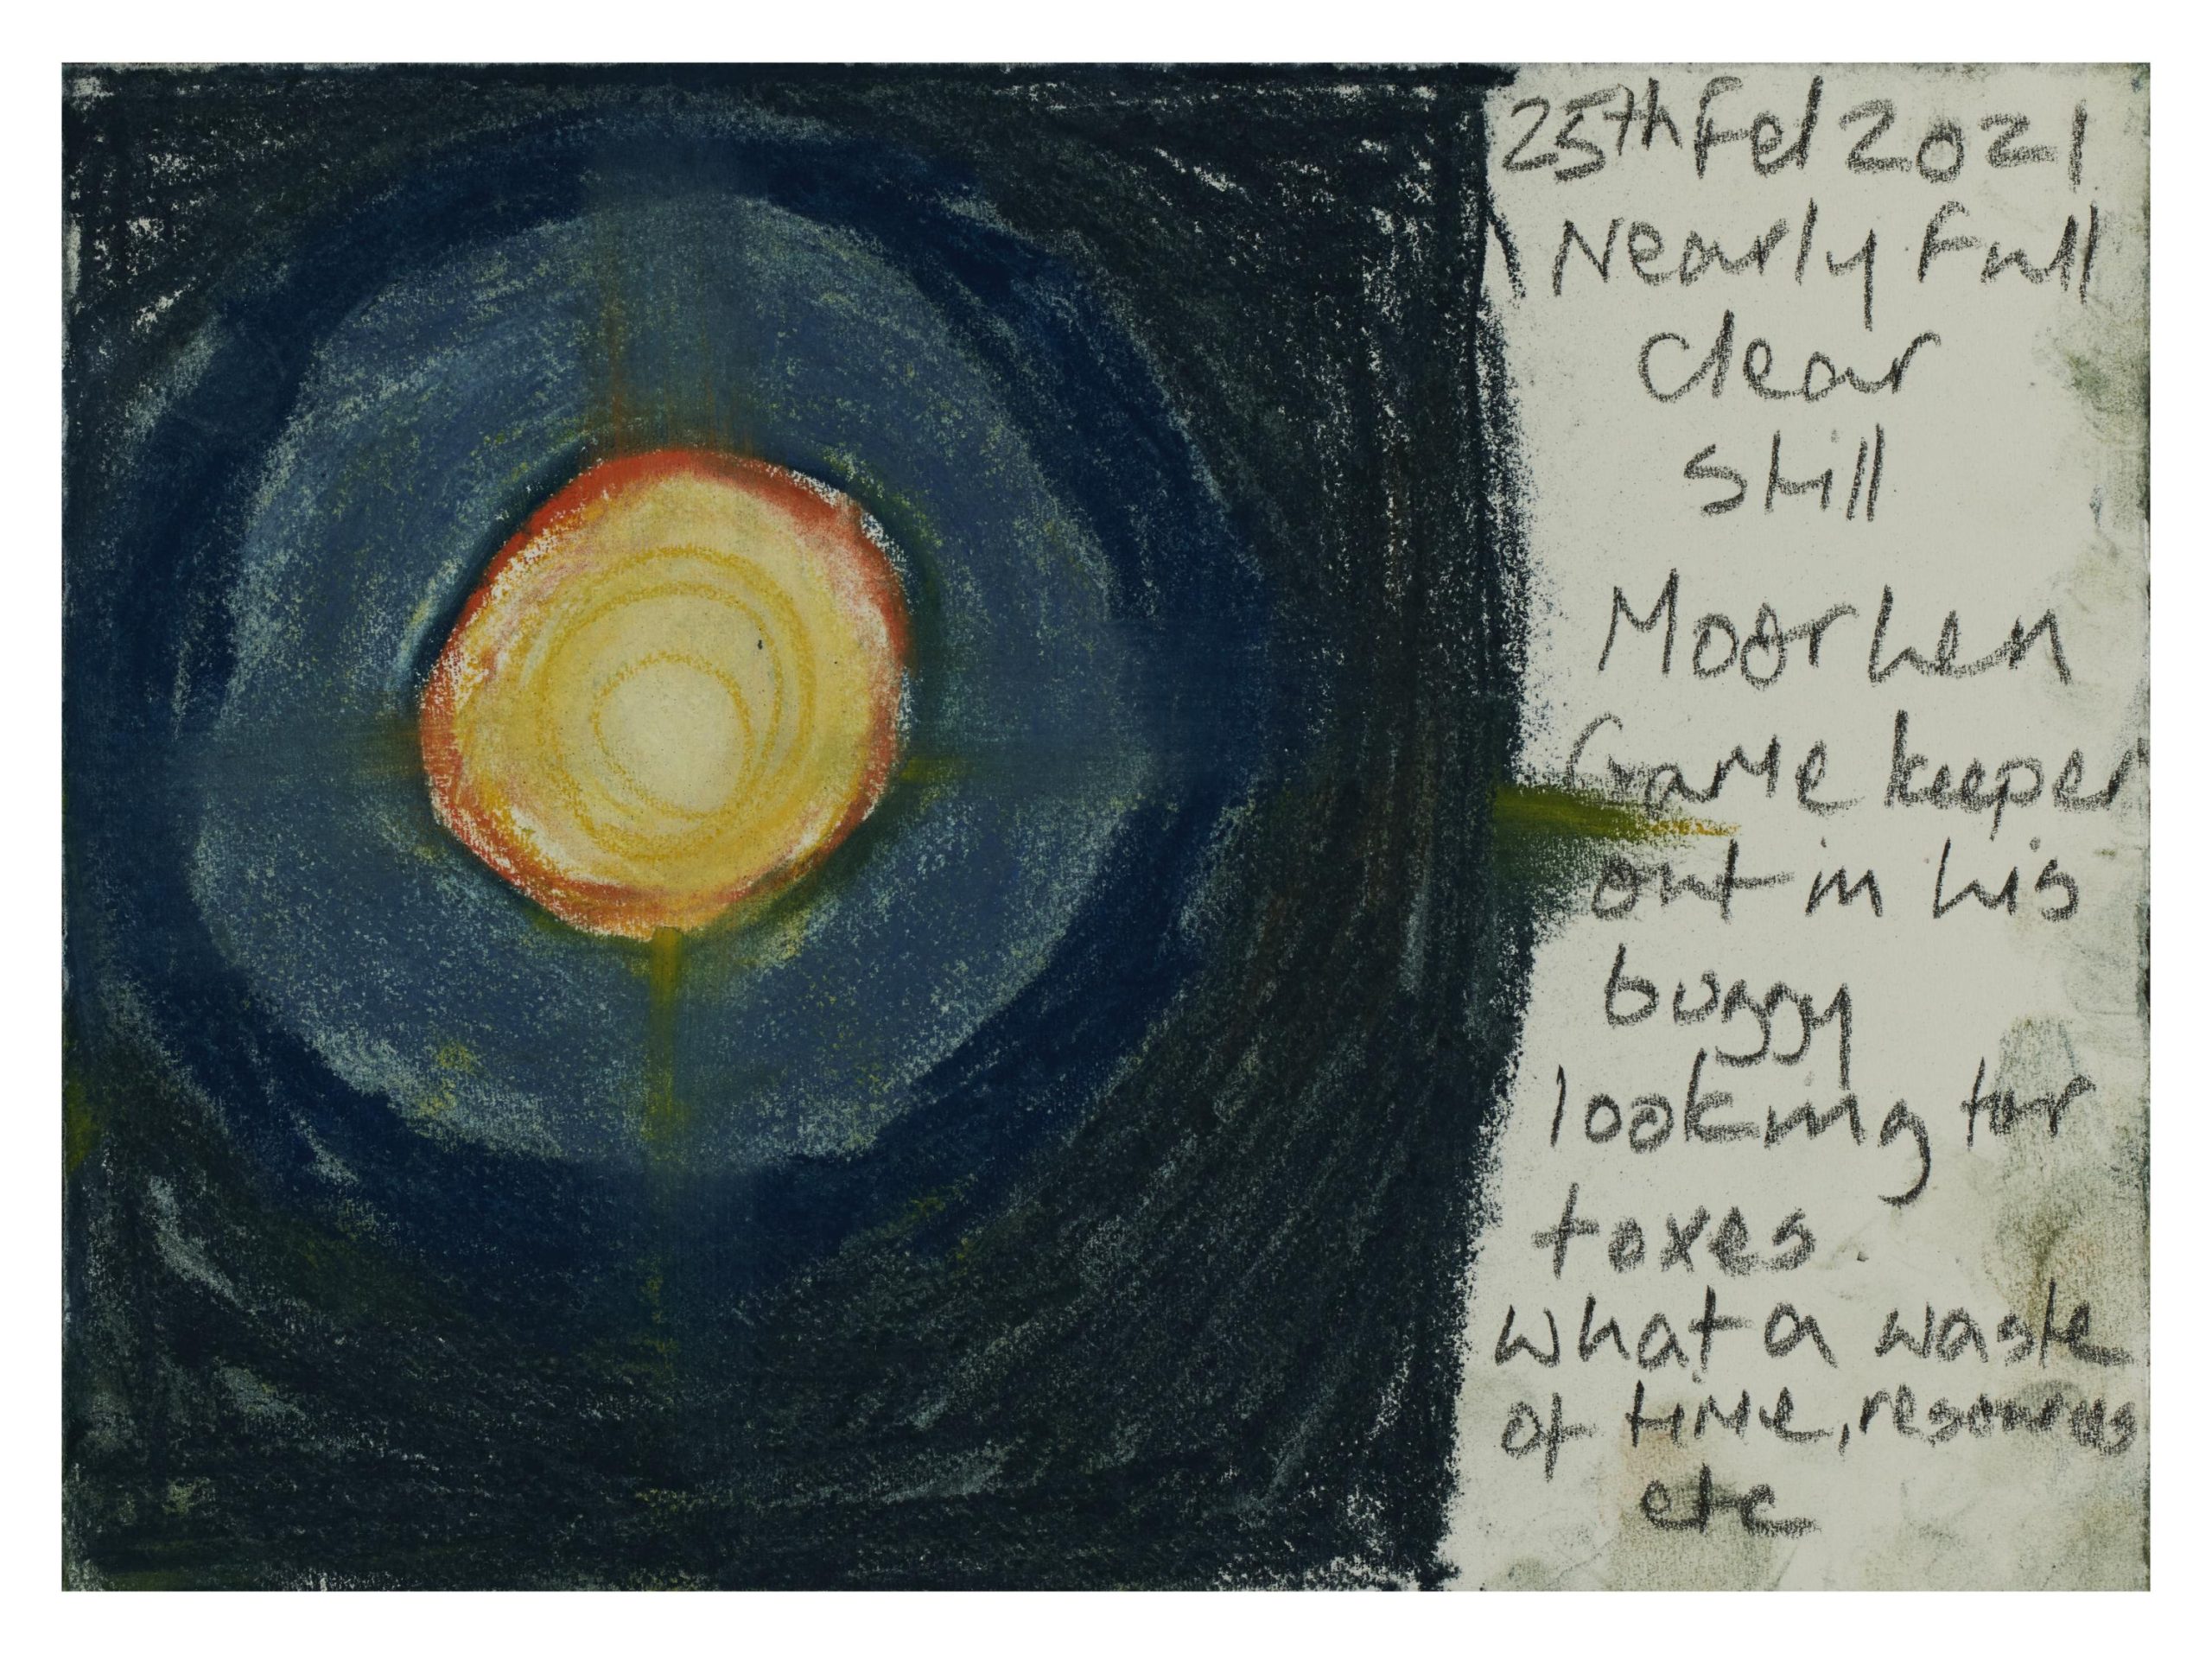 25th Feb 2021
Nearly Full
clear
still
Moorhen
Game keeper
out in his
buggy
looking for
foxes.
what a waste
of time, resources
etc